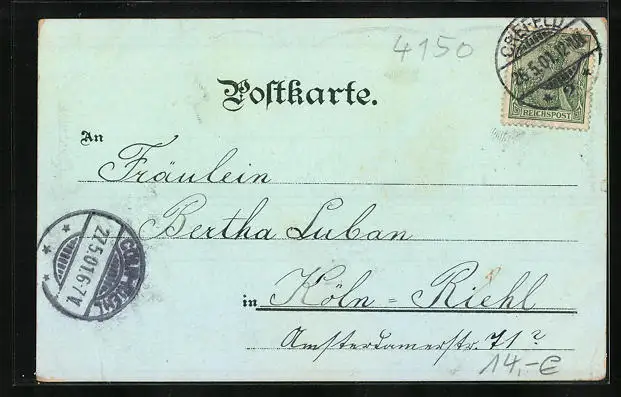 4150
CREFELD
26.5.01.12-1N.
2
REICHSPOST
Postkarte.
An
Fräulein
Bertha Luban
in Köln = Riehl
Amsterdamerstr. 71?
14,-€
27.5.01.6-7V.